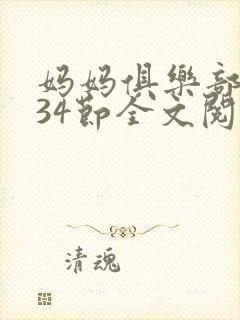 妈妈俱樂部
34節全文閱
清魂